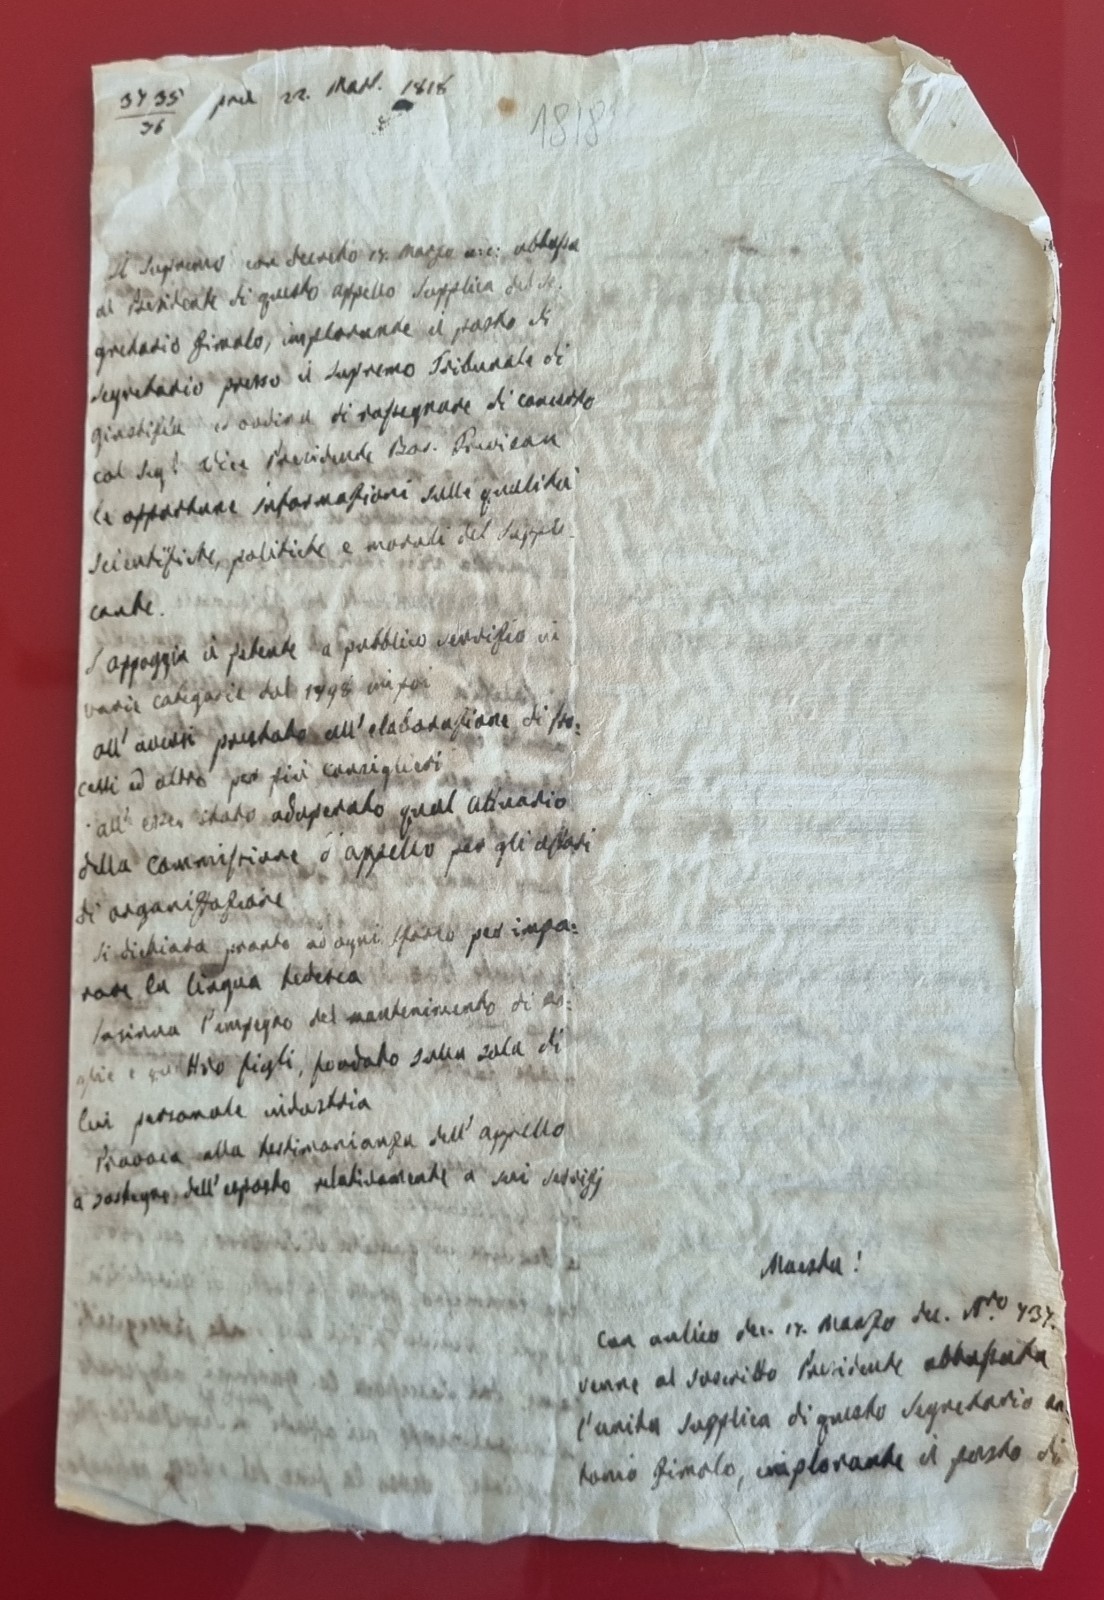 3435 pres 22. Mar. 1818
36
1818
Il Supremo con decreto 17. Marzo a: c: abbassa
al Presidente di questo appello supplica del Se-
gretario Zimolo, implorante il posto di
Segretario presso il supremo Tribunale di
giustizia ed ordina di rassegnare di concerto
col Sigr Vice Presidente Bar.
le opportune informazioni sulle qualità
scientifiche, politiche e morali del suppli-
cante.
S'appoggia il petente a pubblico servizio in
varie categorie dal 1798 in poi
all'aversi prestato all'elaborazione di pro:
cessi ed altro per più consiglieri
all'esser stato adoperato qual Attuario
della Commissione d'appello per gli affari
di organizzazione
Si dichiara pronto ad ogni sforzo per impa:
rare la lingua tedesca
Insinua l'impegno del mantenimento di mo:
glie e figli, fondato sulla sola di
lui personale industria
Provoca alla testimonianza dell'appello
a sostegno dell'esposto relativamente a suoi servizj
Maestà!
Con aulico dec. 17. Marzo dec. Nro 737.
venne al soscritto Presidente abbassata
l'unita supplica di questo Segretario An-
tonio Zimolo, implorante il posto di